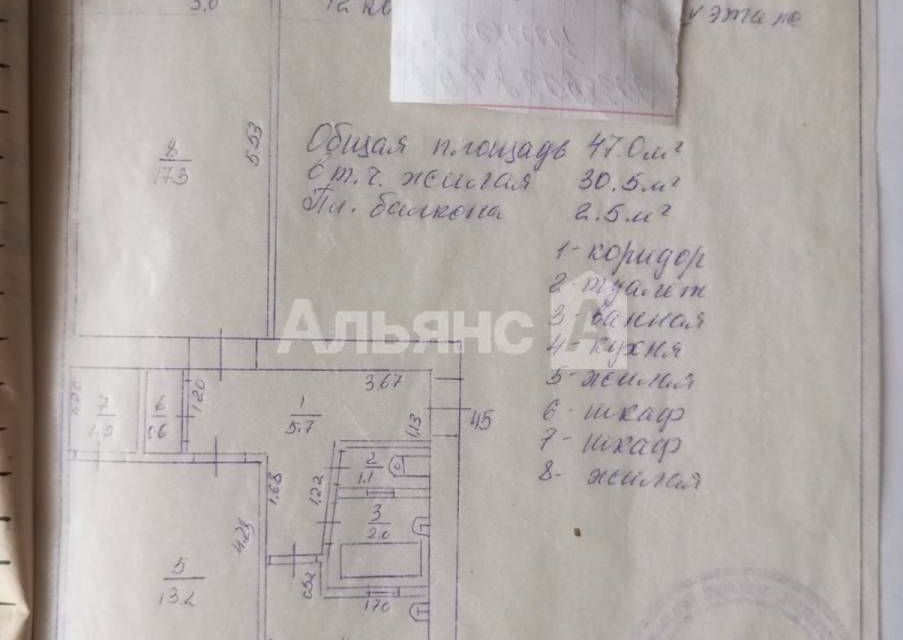 3.0
этаже
5.53
8
17.3
Общая площадь 47.0 м²
в т.ч. жилая 30.5 м²
Пл. балкона 2.5 м²
1- коридор
2- туалет
3- ванная
4- кухня
5- жилая
6- шкаф
7- шкаф
8- жилая
Альянс
3.67
7
6
0.6
1.20
1
5.7
1.13
45
2
1.1
1.68
1.22
3
2.0
4.29
5
13.2
1.70